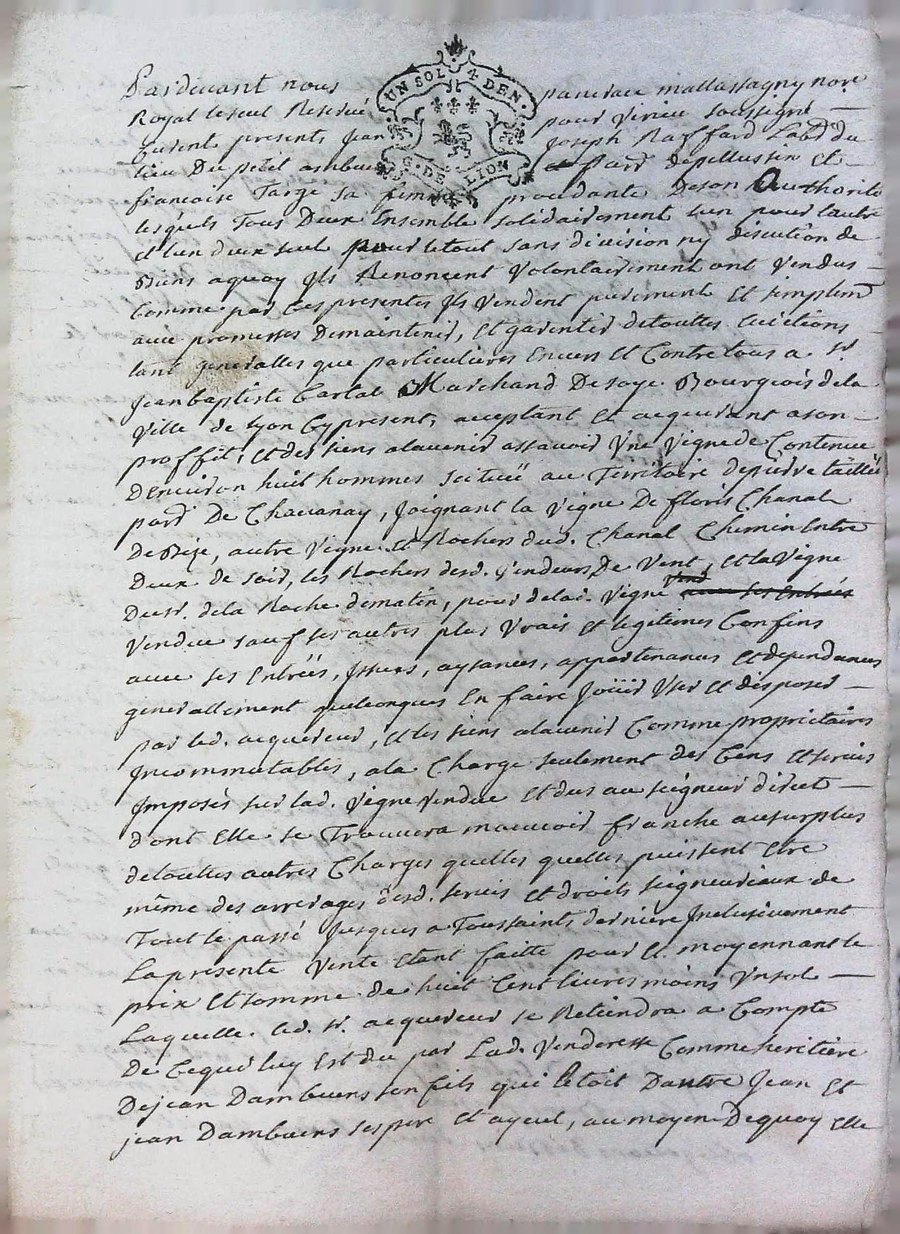 Pardevant nous pancrace mallassagny nore
UN SOL 4 DEN.
G. DE LION
Royal le seul Reservé pour Virieu soussigné
furent presents Jean Joseph Raffard Labr du
lieu Du petit ambuen parr depellussin et
francoise Targe sa femme procedante de son Authorité
lesquels Tous Deux Ensemble solidairement lun pour lautre
et lun deux seul pour letout sans division ny discution de
Biens aquoy ils Renoncent Volontairement ont Vendus
Comme par Ces presentes ils Vendent purement Et simplemt
aux promesses Demaintenir, et garentir detouttes Evictions
tant generalles que particulieres Envers et Contre tous a sr.
Jean baptiste Cartal Marchand De soye Bourgeois dela
Ville de Lyon Cy present, acceptant et acquerant a son
proffit, et des siens alavenir assavoir Une Vigne de Contenue
d'Environ huit hommes scituée au Territoire depierre taillée
parr De Chavanay, joignant la Vigne De floris Chanal
De Bize, autre Vigne et Rochers dud. Chanal Chemin Entre
Deux de soir, les Rochers desd. Vendeurs De Vent, et la Vigne
Dusr. dela Roche dematin, pour delad. Vigne
Vendue sauf ses autres plus Vrais et legitimes Confins
avec ses Entrées, issues, aysances, appartenances et dependances
generallement quelconques En faire Joüir User et disposer
par led. acquereur, et les siens alavenir Comme proprietaires
incommutables, ala Charge seulement des Cens et servis
imposés sur lad. Vigne Vendue et dus au seigneur direct
dont Elle se Trouvera mouvoir franche au surplus
detouttes autres Charges quelles quelles puissent Etre
même des arrerages desd. servis et droits seigneuriaux de
Tout le passé jusques a Toussaints derniere Inclusivement
La presente Vente etant faitte pour et moyennant le
prix et somme de huit Cent livres moins Un sol
Laquelle led. sr. acquereur se Retiendra a Compte
De Cequi luy Est du par Lad. Venderesse Comme heritiere
De jean Dambuens son fils qui letoit Dautre Jean et
jean Dambuens ses pere et ayeul, au moyen Dequoy elle